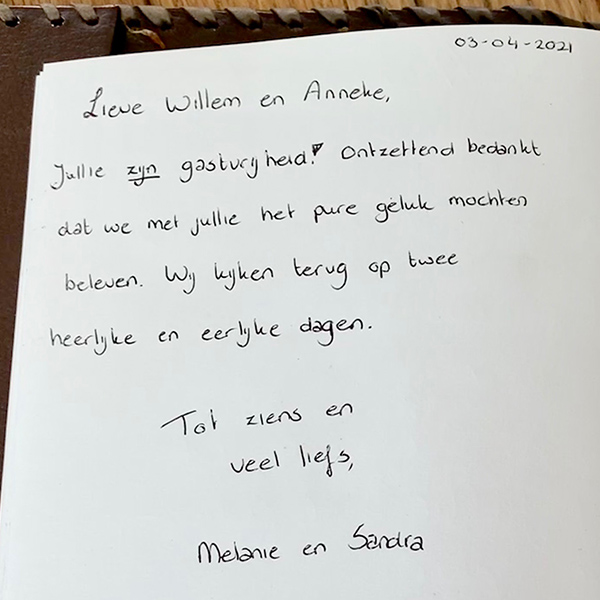 03-04-2021
Lieve Willem en Anneke,
Jullie zijn gastvrijheid! Ontzettend bedankt
dat we met jullie het pure geluk mochten
beleven. Wij kijken terug op twee
heerlijke en eerlijke dagen.
Tot ziens en
veel liefs,
Melanie en Sandra